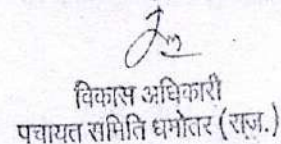 विकास अधिकारी
पंचायत समिति धमोतर (राज.)